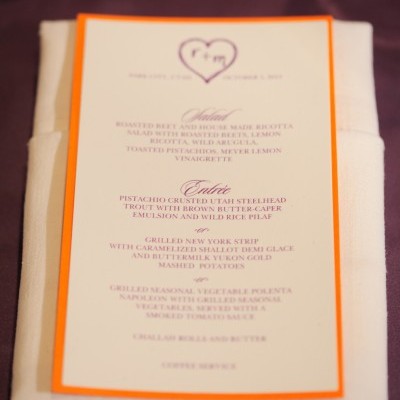 r + m
PARK CITY, UTAH OCTOBER 5, 2013
Salad
ROASTED BEET AND HOUSE MADE RICOTTA
SALAD WITH ROASTED BEETS, LEMON
RICOTTA, WILD ARUGULA,
TOASTED PISTACHIOS, MEYER LEMON
VINAIGRETTE
Entrée
PISTACHIO CRUSTED UTAH STEELHEAD
TROUT WITH BROWN BUTTER-CAPER
EMULSION AND WILD RICE PILAF
or
GRILLED NEW YORK STRIP
WITH CARAMELIZED SHALLOT DEMI GLACE
AND BUTTERMILK YUKON GOLD
MASHED POTATOES
or
GRILLED SEASONAL VEGETABLE POLENTA
NAPOLEON WITH GRILLED SEASONAL
VEGETABLES, SERVED WITH A
SMOKED TOMATO SAUCE
CHALLAH ROLLS AND BUTTER
COFFEE SERVICE